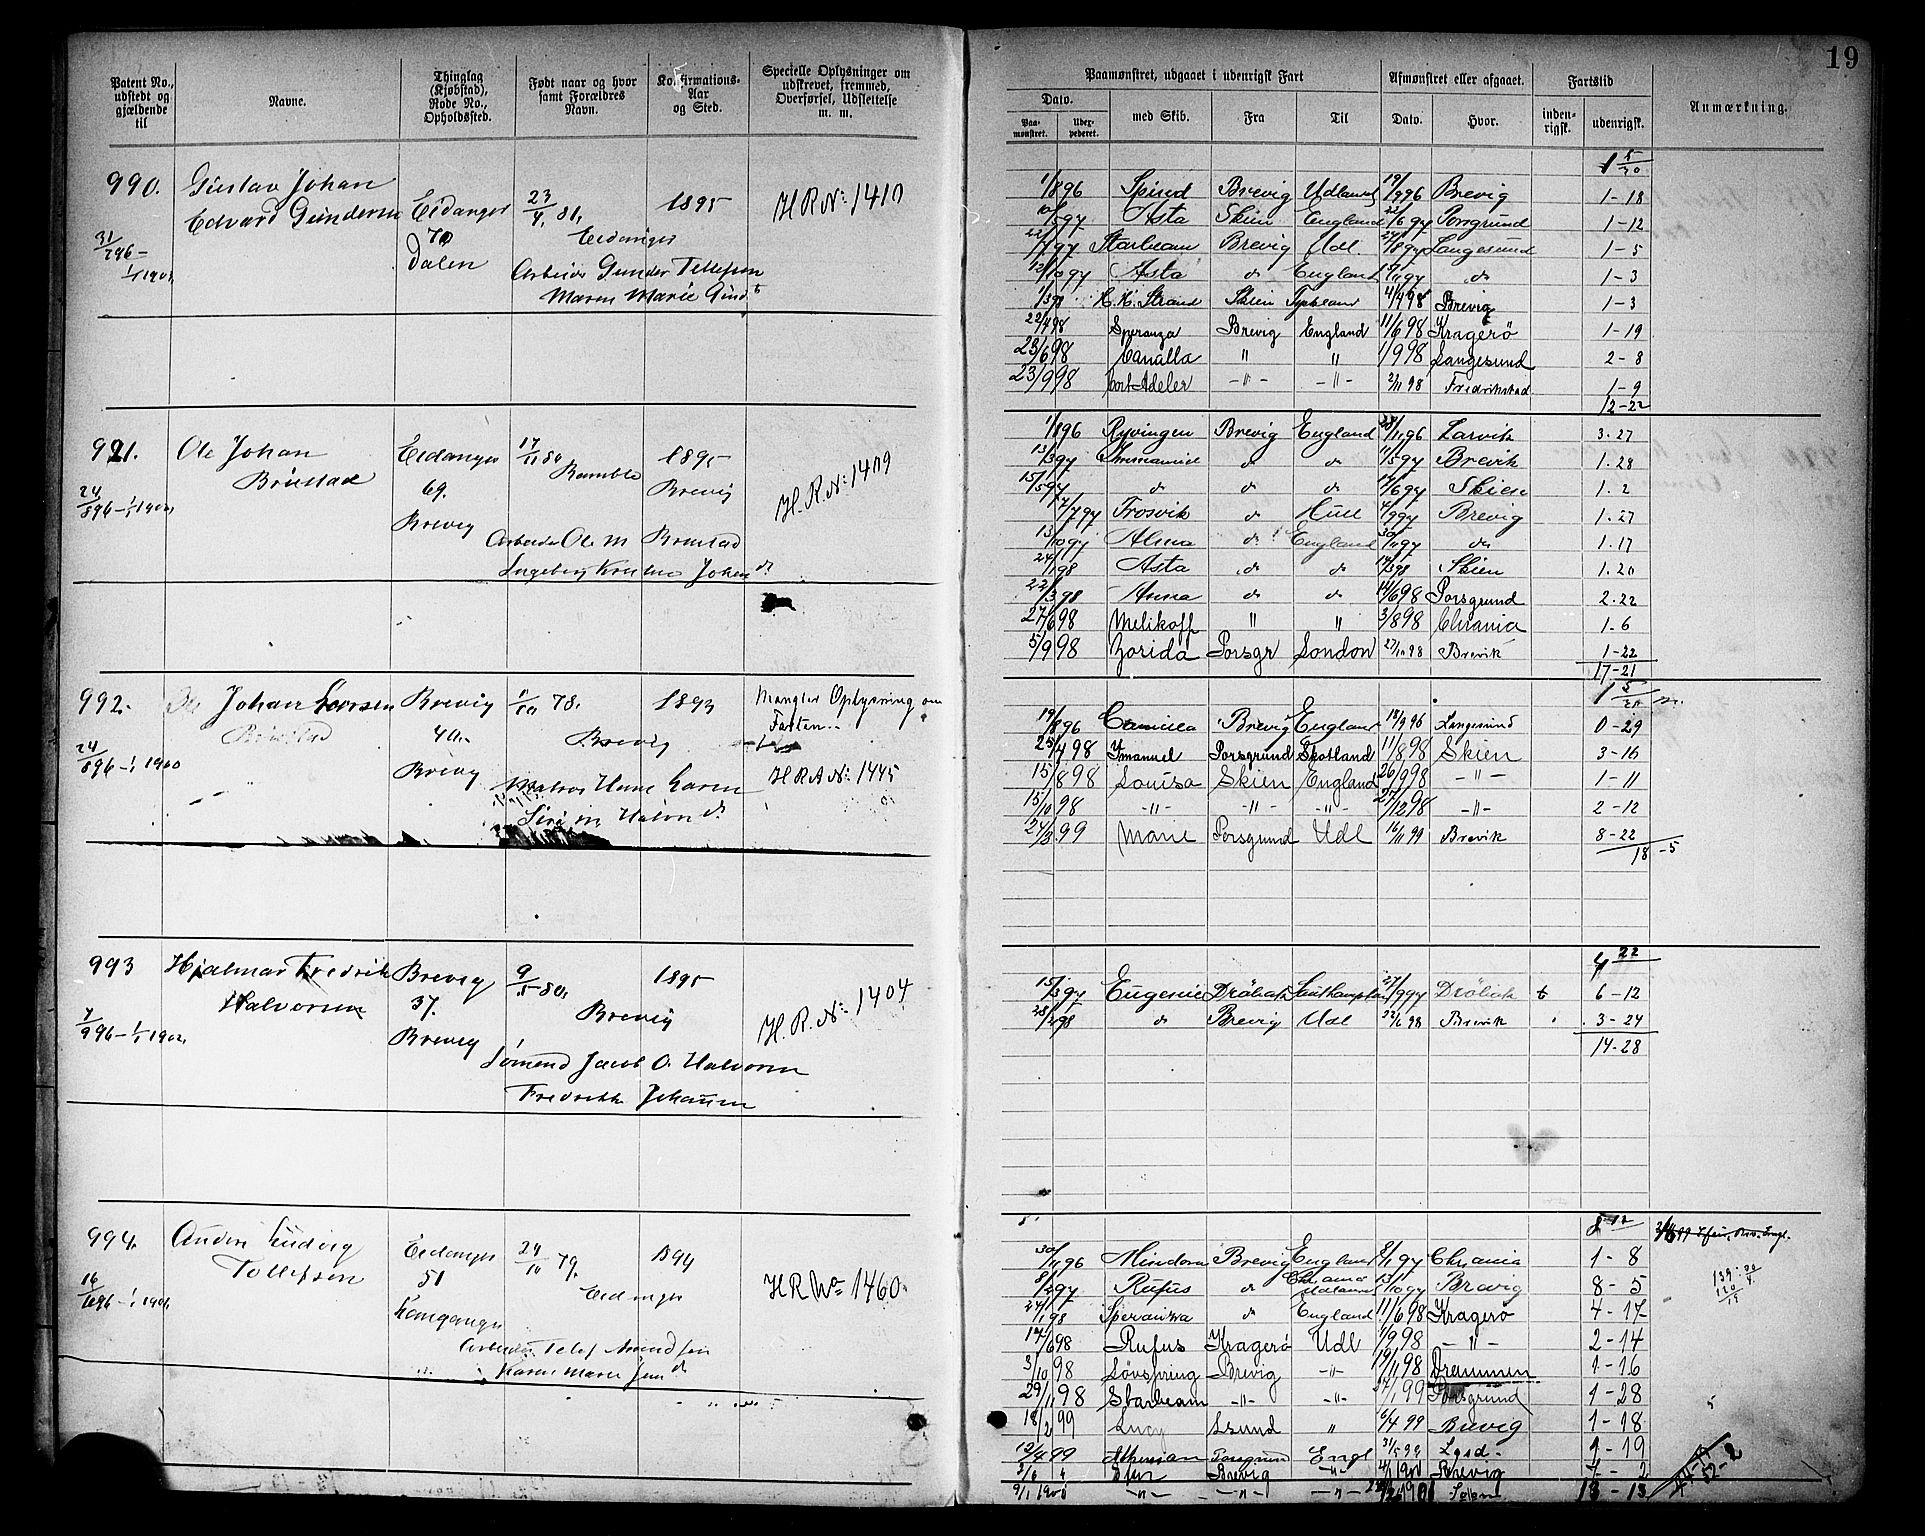 19
Patent No., udstedt og gjældende til
Navne.
Thinglag (Kjøbstad), Rode No., Opholdssted.
Født naar og hvor samt Forældres Navn.
Konfirmations-Aar og Sted.
Specielle Oplysninger om udskrevet, fremmed, Overførsel, Udslettelse m. m.
Paamønstret, udgaaet i udenrigsk Fart
Afmønstret eller afgaaet.
Fartstid
Anmærkning.
Dato.
Paa-mønstret.
Udex-pederet.
med Skib.
Fra
Til
Dato.
Hvor.
inden-rigsk.
udenrigsk.
990.
Gustav Johan
Edvard Gundersen
Eidanger
70
Dalen
23/4 81,
Eidanger
Arbeider Gunder Tellefsen
Maren Marie Gundd
1895
H R N: 1410
31/7 96 – 1/1 1902
1 5/30
1/8 96 Spind Brevig Udland 19/9 96 Brevig 1-18
10/5 97 Asta Skien England 22/6 97 Porsgrund 1-12
22/7 97 Starbeam Brevig Udl. 27/8 97 Langesund 1-5
12/10 97 Asta do England 15/11 97 do 1-3
1/3 98 H. H. Strand Skien Tyskland 4/4 98 Brevig 1-3
22/4 98 Speranza Brevig England 11/6 98 Kragerö 1-19
23/6 98 Canalla " " 1/9 98 Langesund 2-8
23/9 98 Cort Adeler -"- -"- 2/11 98 Fredrikstad 1-9
12-22
991.
Ole Johan
Brustad
Eidanger
69.
Brevig
17/11 80
Bamble
Arbeider Ole M Brustad
Ingeborg Kristine Johand
1895
Brevig
H. R. N: 1409
24/8 96 – 1/1 1902
1/8 96 Ryvingen Brevig England 28/11 96 Larvik 3.27
13/3 97 do do 11/5 97 Brevik 1.28
15/5 97 do do do 17/6 97 Skien 1.2
7/7 97 Frosvik do Hull 4/9 97 Brevig 1.27
13/10 97 Alma do England 30/11 97 do 1.17
24/1 98 Asta do do 14/3 98 Skien 1.20
22/3 98 Anna do do 14/6 98 Porsgrund 2.22
27/6 98 Melikoff " " 3/8 98 Chrania 1-6
5/9 98 Zorida Porsgr London 27/10 98 Brevik 1-22
17-21
992.
Ole Johan Larsen
Brustad
Brevig
40.
Brevig
1/10 78.
Brevig
Matros Hans Larsen
Siri M. Halvd
1893
Mangler Oplysning om
Farten
H R A N: 1445
24/8 96 – 1/1 1900
1 5/30 m.
19/8 96 Camilla Brevig England 18/9 96 Langesund 0-29
25/4 98 Imanuel Porsgrund Skotland 11/8 98 Skien 3-16
15/8 98 Louisa Skien England 26/9 98 -"- 1-11
15/10 98 -"- -"- -"- 27/12 98 -"- 2-12
24/3 99 Marie Porsgrund Udl 16/11 99 Brevik 8-22
18-5
993
Hjalmar Fredrik
Halvorsen
Brevig
37.
Brevig
9/5 80,
Brevig
Sømand Jacob O. Halvorsen
Fredrikke Johansen
1895
H. R. N: 1404
7/9 96 – 1/1 1902
4 22
15/3 97 Eugenie Dröbak Southampton 27/9 97 Dröbak 6-12
28/2 98 do Brevig Udl 22/6 98 Brevik 3-24
14-28
994.
Anders Ludvig
Tollefsen
Eidanger
51
24/10 79.
Eidanger
Arbeider Tellef Amundsen
Karen Marie Jensd
1894
H R No 1460.
8 12
30/11 96 Mindora Brevig England 8/1 97 Chrania 1-8
8/2 97 Rufus do Chrania Udland 13/10 97 Brevig 8-5
24/1 98 Speranza do England 11/6 98 Kragerö 4-17
17/6 98 Rufus Kragerö Udl 1/9 98 -"- 2-14
3/10 98 Lövspring Brevig -"- 19/11 98 Drammen 1-16
29/11 98 Starbeam -"- -"- 27/1 99 Porsgrund 1-28
18/2 99 Lucy Lsund " 6/4 99 Brevig 1-18
12/4 99 Porsgrund Engl 31/5 99 Lgsd. 1-19
3/6 " Brevig -"- 4/1 1900 Brevig 7-2
9/1 1900 -"- -"- -"- 13-13
52-2